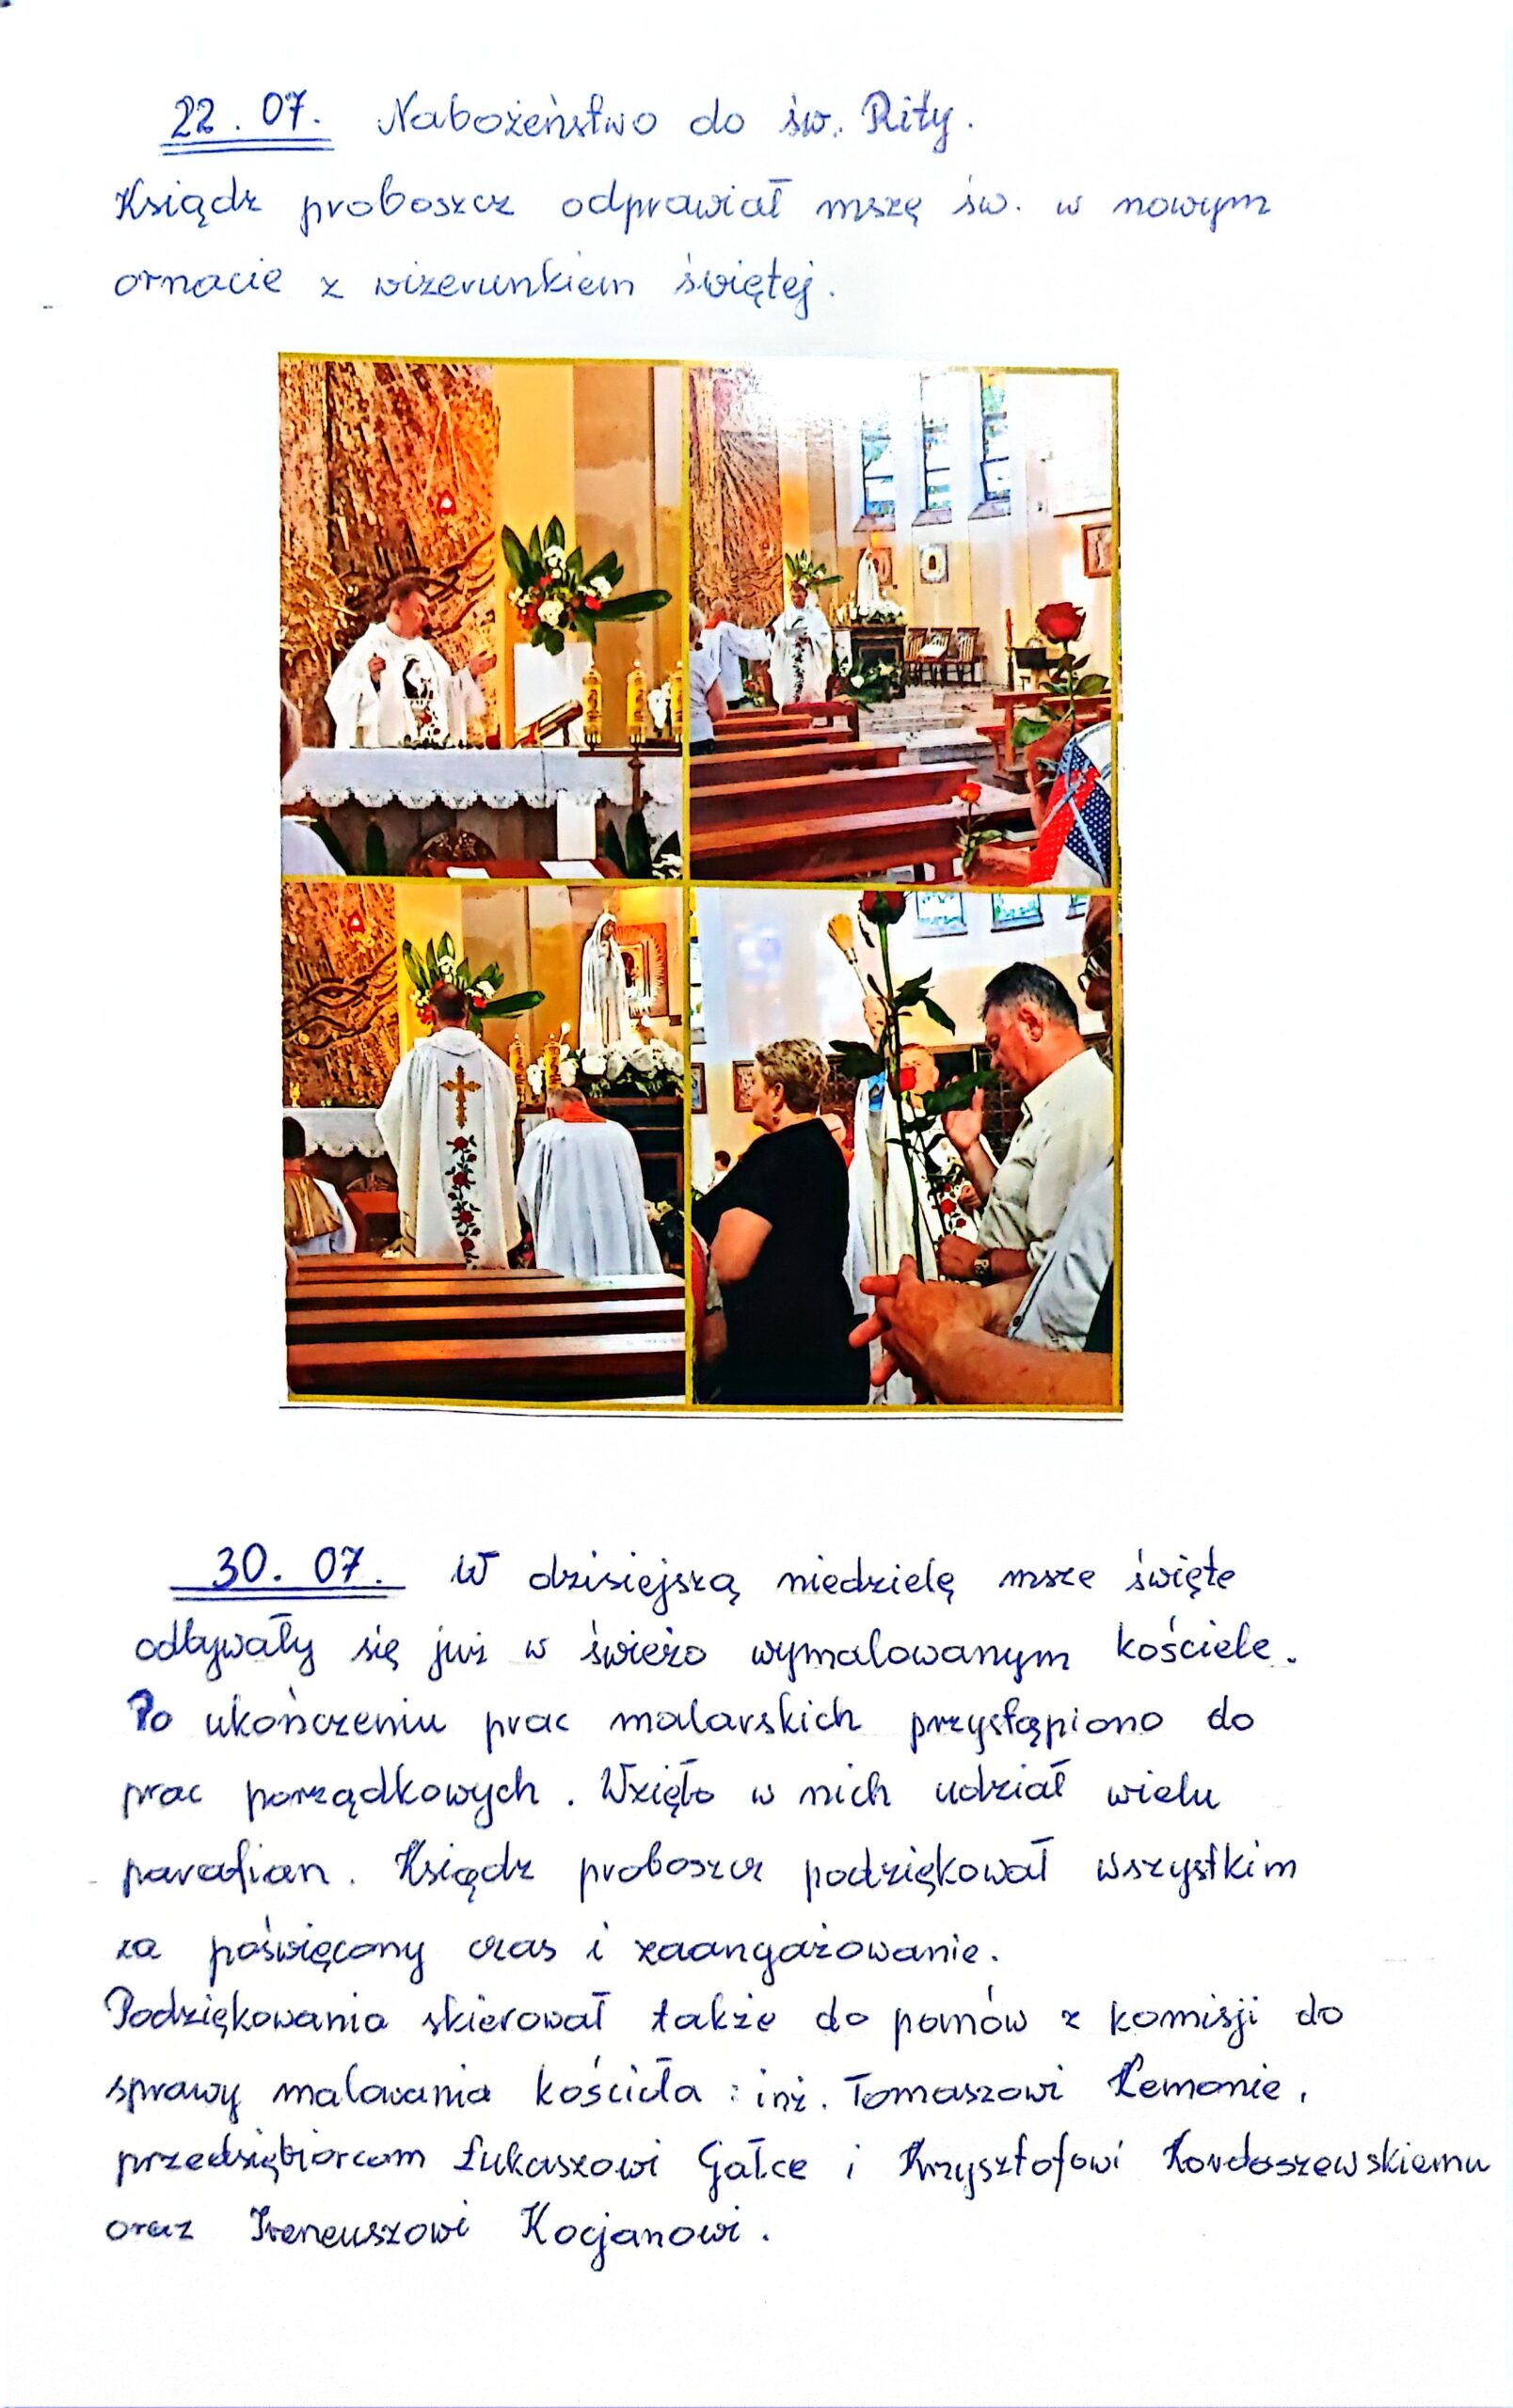 22.07. Nabożeństwo do św. Rity.
Ksiądz proboszcz odprawiał mszę św. w nowym
ornacie z wizerunkiem świętej.
30.07. W dzisiejszą niedzielę msze święte
odbywały się już w świeżo wymalowanym kościele.
Po ukończeniu prac malarskich przystąpiono do
prac porządkowych. Wzięło w nich udział wielu
parafian. Ksiądz proboszcz podziękował wszystkim
za poświęcony czas i zaangażowanie.
Podziękowania skierował także do panów z komisji do
sprawy malowania kościoła: inż. Tomaszowi
przedsiębiorcom Łukaszowi Gałce i Krzysztofowi Kordoszewskiemu
oraz Ireneuszowi Kocjanowi.